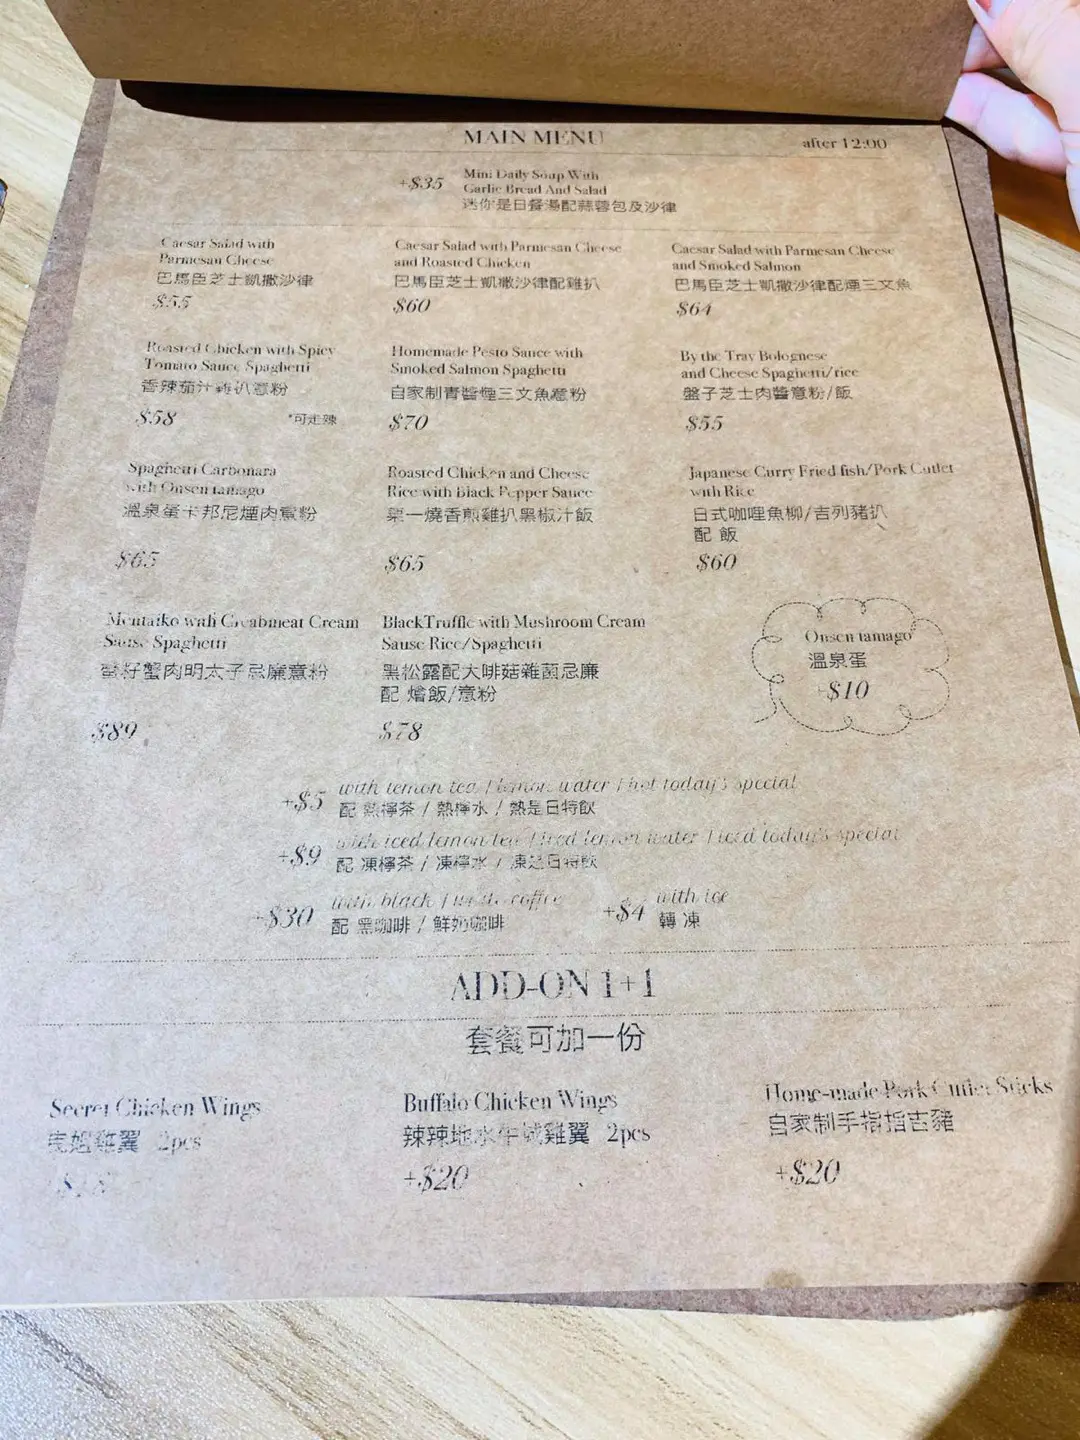 MAIN MENU
after 12:00
+$35
Mini Daily Soup With
Garlic Bread And Salad
迷你是日餐湯配蒜蓉包及沙律
Caesar Salad with
Parmesan Cheese
巴馬臣芝士凱撒沙律
$55
Caesar Salad with Parmesan Cheese
and Roasted Chicken
巴馬臣芝士凱撒沙律配雞扒
$60
Caesar Salad with Parmesan Cheese
and Smoked Salmon
巴馬臣芝士凱撒沙律配煙三文魚
$64
Roasted Chicken with Spicy
Tomato Sauce Spaghetti
香辣茄汁雞扒意粉
$58
*可走辣
Homemade Pesto Sauce with
Smoked Salmon Spaghetti
自家制青醬煙三文魚意粉
$70
By the Tray Bolognese
and Cheese Spaghetti/rice
盤子芝士肉醬意粉/飯
$55
Spaghetti Carbonara
with Onsen tamago
溫泉蛋卡邦尼煙肉意粉
$65
Roasted Chicken and Cheese
Rice with Black Pepper Sauce
栗一燒香煎雞扒黑椒汁飯
$65
Japanese Curry Fried fish/Pork Cutlet
with Rice
日式咖哩魚柳/吉列豬扒
配 飯
$60
Mentaiko with Creabmeat Cream
Sause Spaghetti
蟹肉明太子忌廉意粉
$89
BlackTruffle with Mushroom Cream
Sause Rice/Spaghetti
黑松露配大啡菇雜菌忌廉
配 燴飯/意粉
$78
Onsen tamago
溫泉蛋
+$10
+$5
with lemon tea / lemon water / hot today's special
配 熱檸茶 / 熱檸水 / 熱是日特飲
+$9
with iced lemon tea / iced lemon water / iced today's special
配 凍檸茶 / 凍檸水 / 凍是日特飲
+$30
with black / white coffee
配 黑咖啡 / 鮮奶咖啡
+$4
with ice
轉 凍
ADD-ON 1+1
套餐可加一份
Secret Chicken Wings
雞翼 2pcs
Buffalo Chicken Wings
辣辣地水牛城雞翼 2pcs
+$20
Home-made Pork Cutlet Sticks
自家制手指指吉豬
+$20